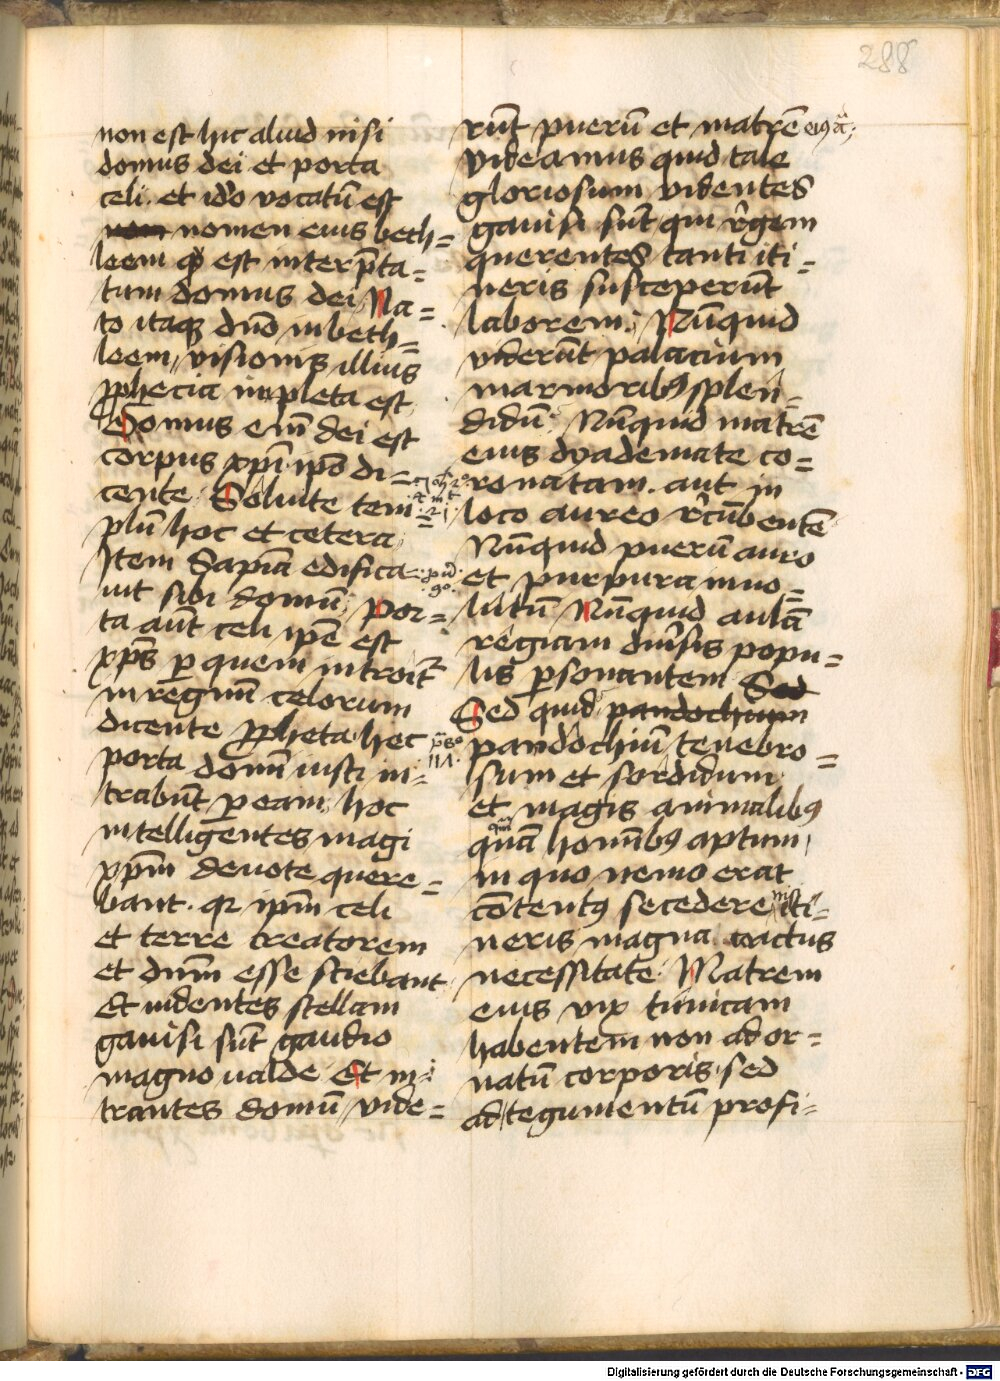 288
non est hic aliud nisi
domus dei et porta
celi. et ido vocatū est
nomen eius beth=
leem qđ est interp̄ta=
tum domus dei Na=
to itaqꝫ dn̄o in beth=
leem, visionis illius
ꝓphecia impleta est
Domus em̄ dei est
corpus xp̄i. ip̄o di=
cente Soluite tem=
plū hoc et cetera
Item Sapīa edifica=
uit sibi domū, Por=
ta aūt celi ip̄e est
xp̄s ꝑ quem introit᷑
in regnū celorum
dicente ꝓpheta hec
porta domī iusti in=
trabūt ꝑ eam, hoc
intelligentes magi
xp̄m deuote quere=
bant. qꝛ ip̄m celi
et terre creatorem
et dn̄m esse sciebant
Et uidentes stellam
gauisi sūt gaudio
magno ualde Et in=
trantes domū vide=
rūt puerū et matrē eiꝰ
videamus quid tale
gloriosum videntes
gauisi sūt qui r̄gem
querentes tanti iti=
neris susceperūt
laborem; Nūquid
viderūt palacium
marmoribꝰ splen=
didū; Nūquid matrē
eius dyademate co=
ronatam. aut in
loco aureo r̄cūbentē
Nūquid puerū auro
et purpura inuo=
lutū Nūquid aulā
regiam diūsis popu=
lis ꝑsonantem Sed
Sed quid pandochium
pandochiū tenebro=
sum et sordidum
et magis animalibꝰ
quā hominibꝰ aptum
in quo nemo erat
cōtentꝰ secedere iti=
neris magna coactus
necessitate Matrem
eius vix tunicam
habentem non ad or=
natū corporis, sed
ad tegumentū profi=
Digitalisierung gefördert durch die Deutsche Forschungsgemeinschaft - DFG